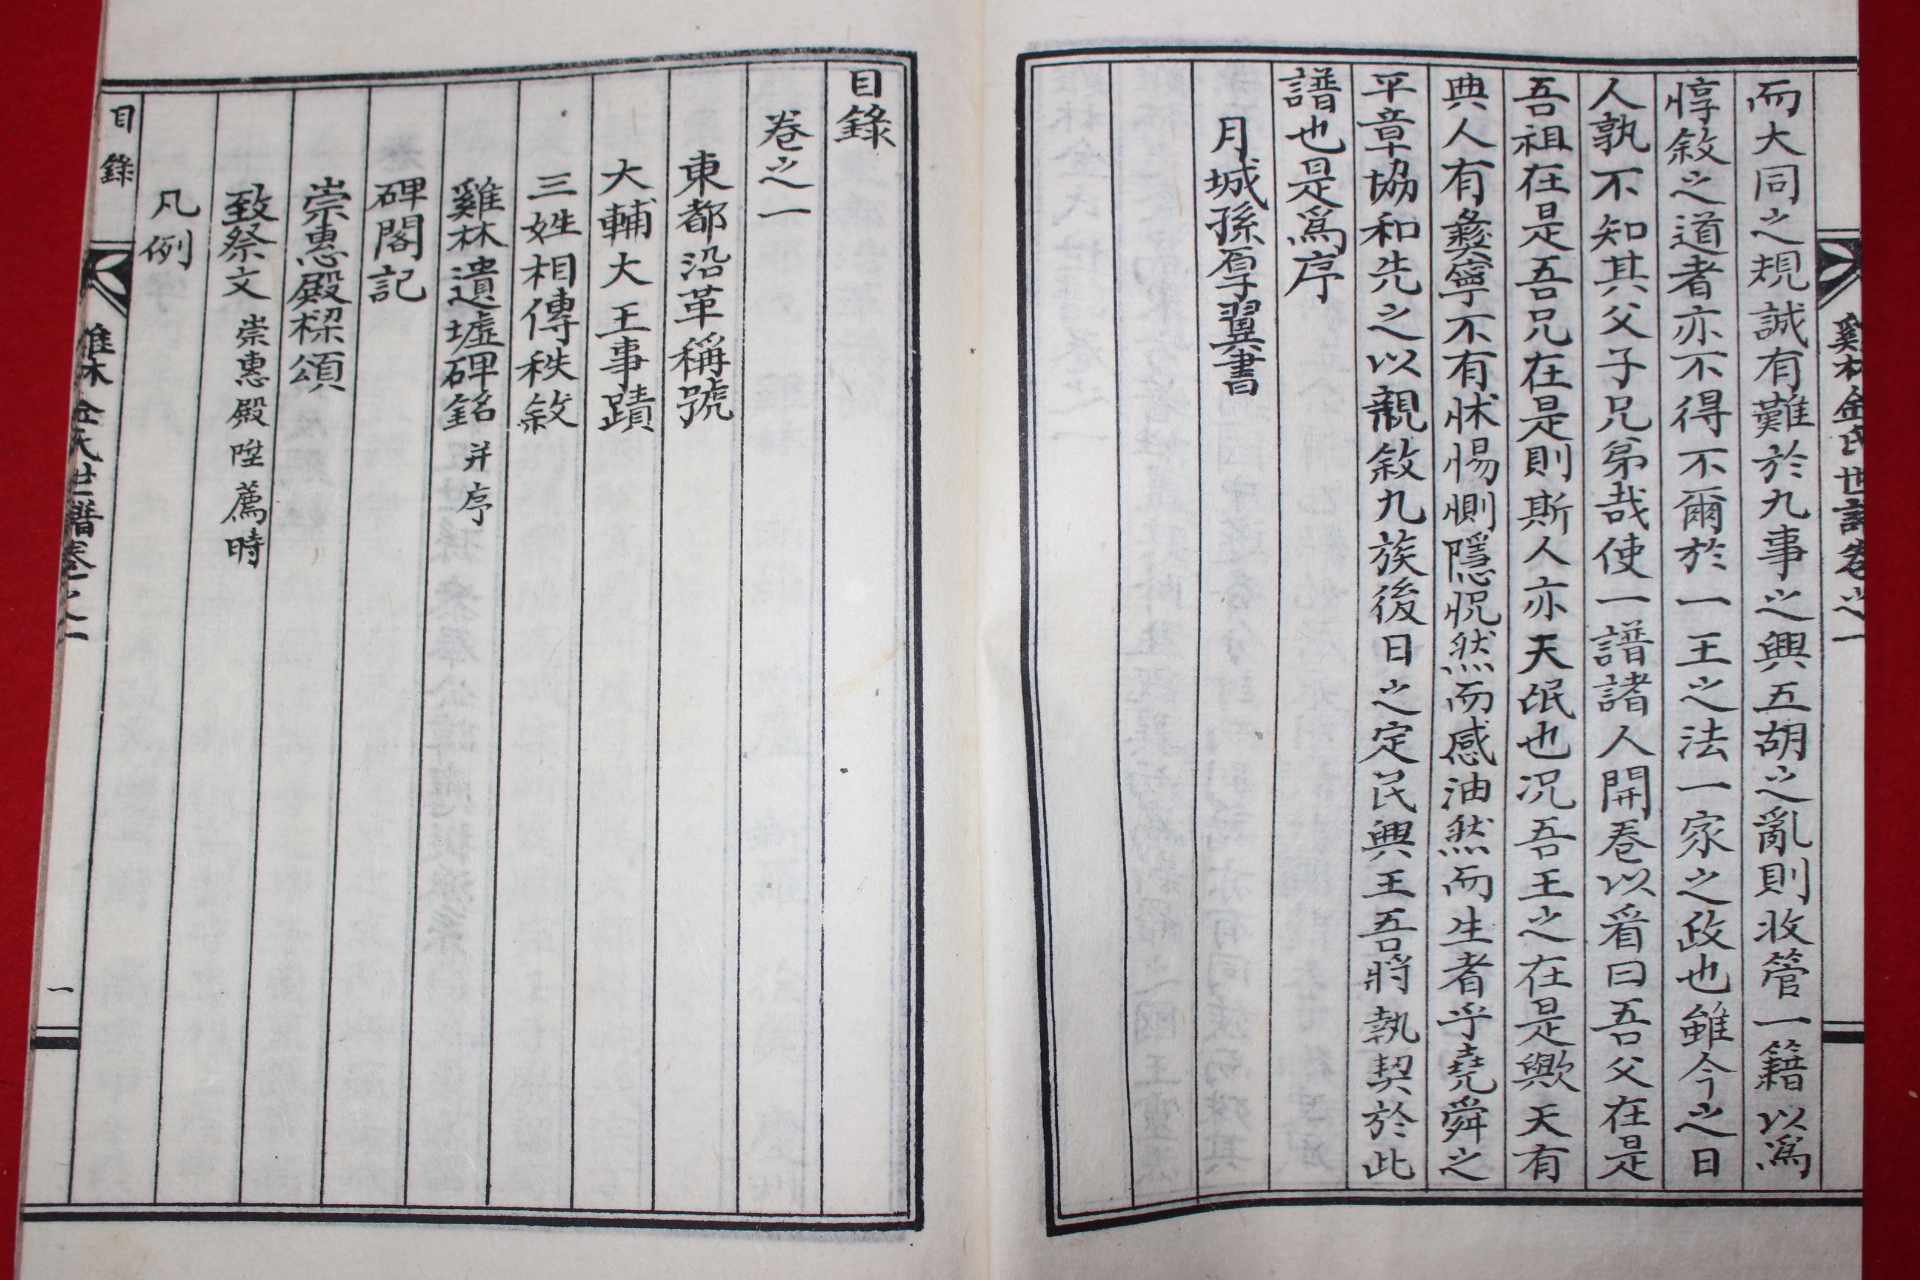 而大同之規誠有難於九事之興五胡之亂則收管一籍以爲
惇敘之道者亦不得不爾於一王之法一家之政也雖今之日
人孰不知其父子兄弟哉使一譜諸人開卷以看曰吾父在是
吾祖在是吾兄在是則斯人亦天氓也况吾王之在是歟天有
典人有彝寧不有怵惕惻隱怳然而感油然而生者乎堯舜之
平章協和先之以親敘九族後日之定民興王吾將執契於此
譜也是爲序
月城孫厚翼書
雞林金氏世譜卷之一
目錄
卷之一
東都沿革稱號
大輔大王事蹟
三姓相傳秩敘
雞林遺墟碑銘 并序
碑閣記
崇惠殿樑頌
致祭文 崇惠殿陞薦時
凡例
目錄
雞林金氏世譜卷之一
一